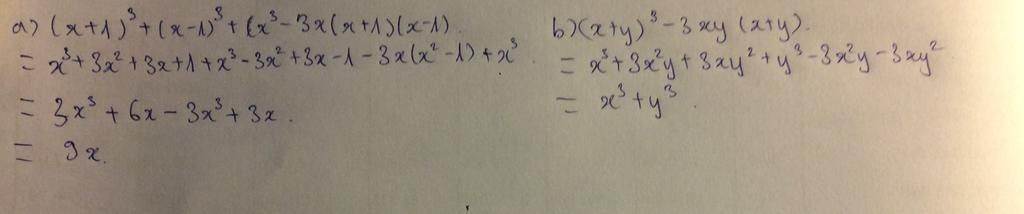 a) (x+1)³ + (x-1)³ + (x³ - 3x(x+1)(x-1).
= x³ + 3x² + 3x + 1 + x³ - 3x² + 3x - 1 - 3x(x² - 1) + x³.
= 3x³ + 6x - 3x³ + 3x.
= 9x.
b) (x+y)³ - 3xy (x+y).
= x³ + 3x²y + 3xy² + y³ - 3x²y - 3xy²
= x³ + y³.